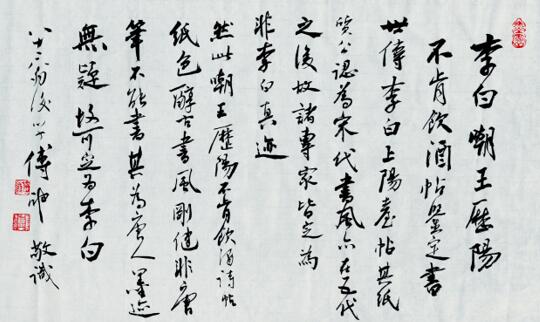 李白嘲王歷陽
不肯飲酒帖鑒定書
世傳李白上陽臺帖其紙
質公認為宋代書風亦在五代
之後故諸專家皆定為
非李白真迹
然此嘲王歷陽不肯飲酒詩帖
紙色醇古書風剛健非唐
筆不能書其為唐人墨迹
無疑故可定為李白
八十翁後學傅申敬識